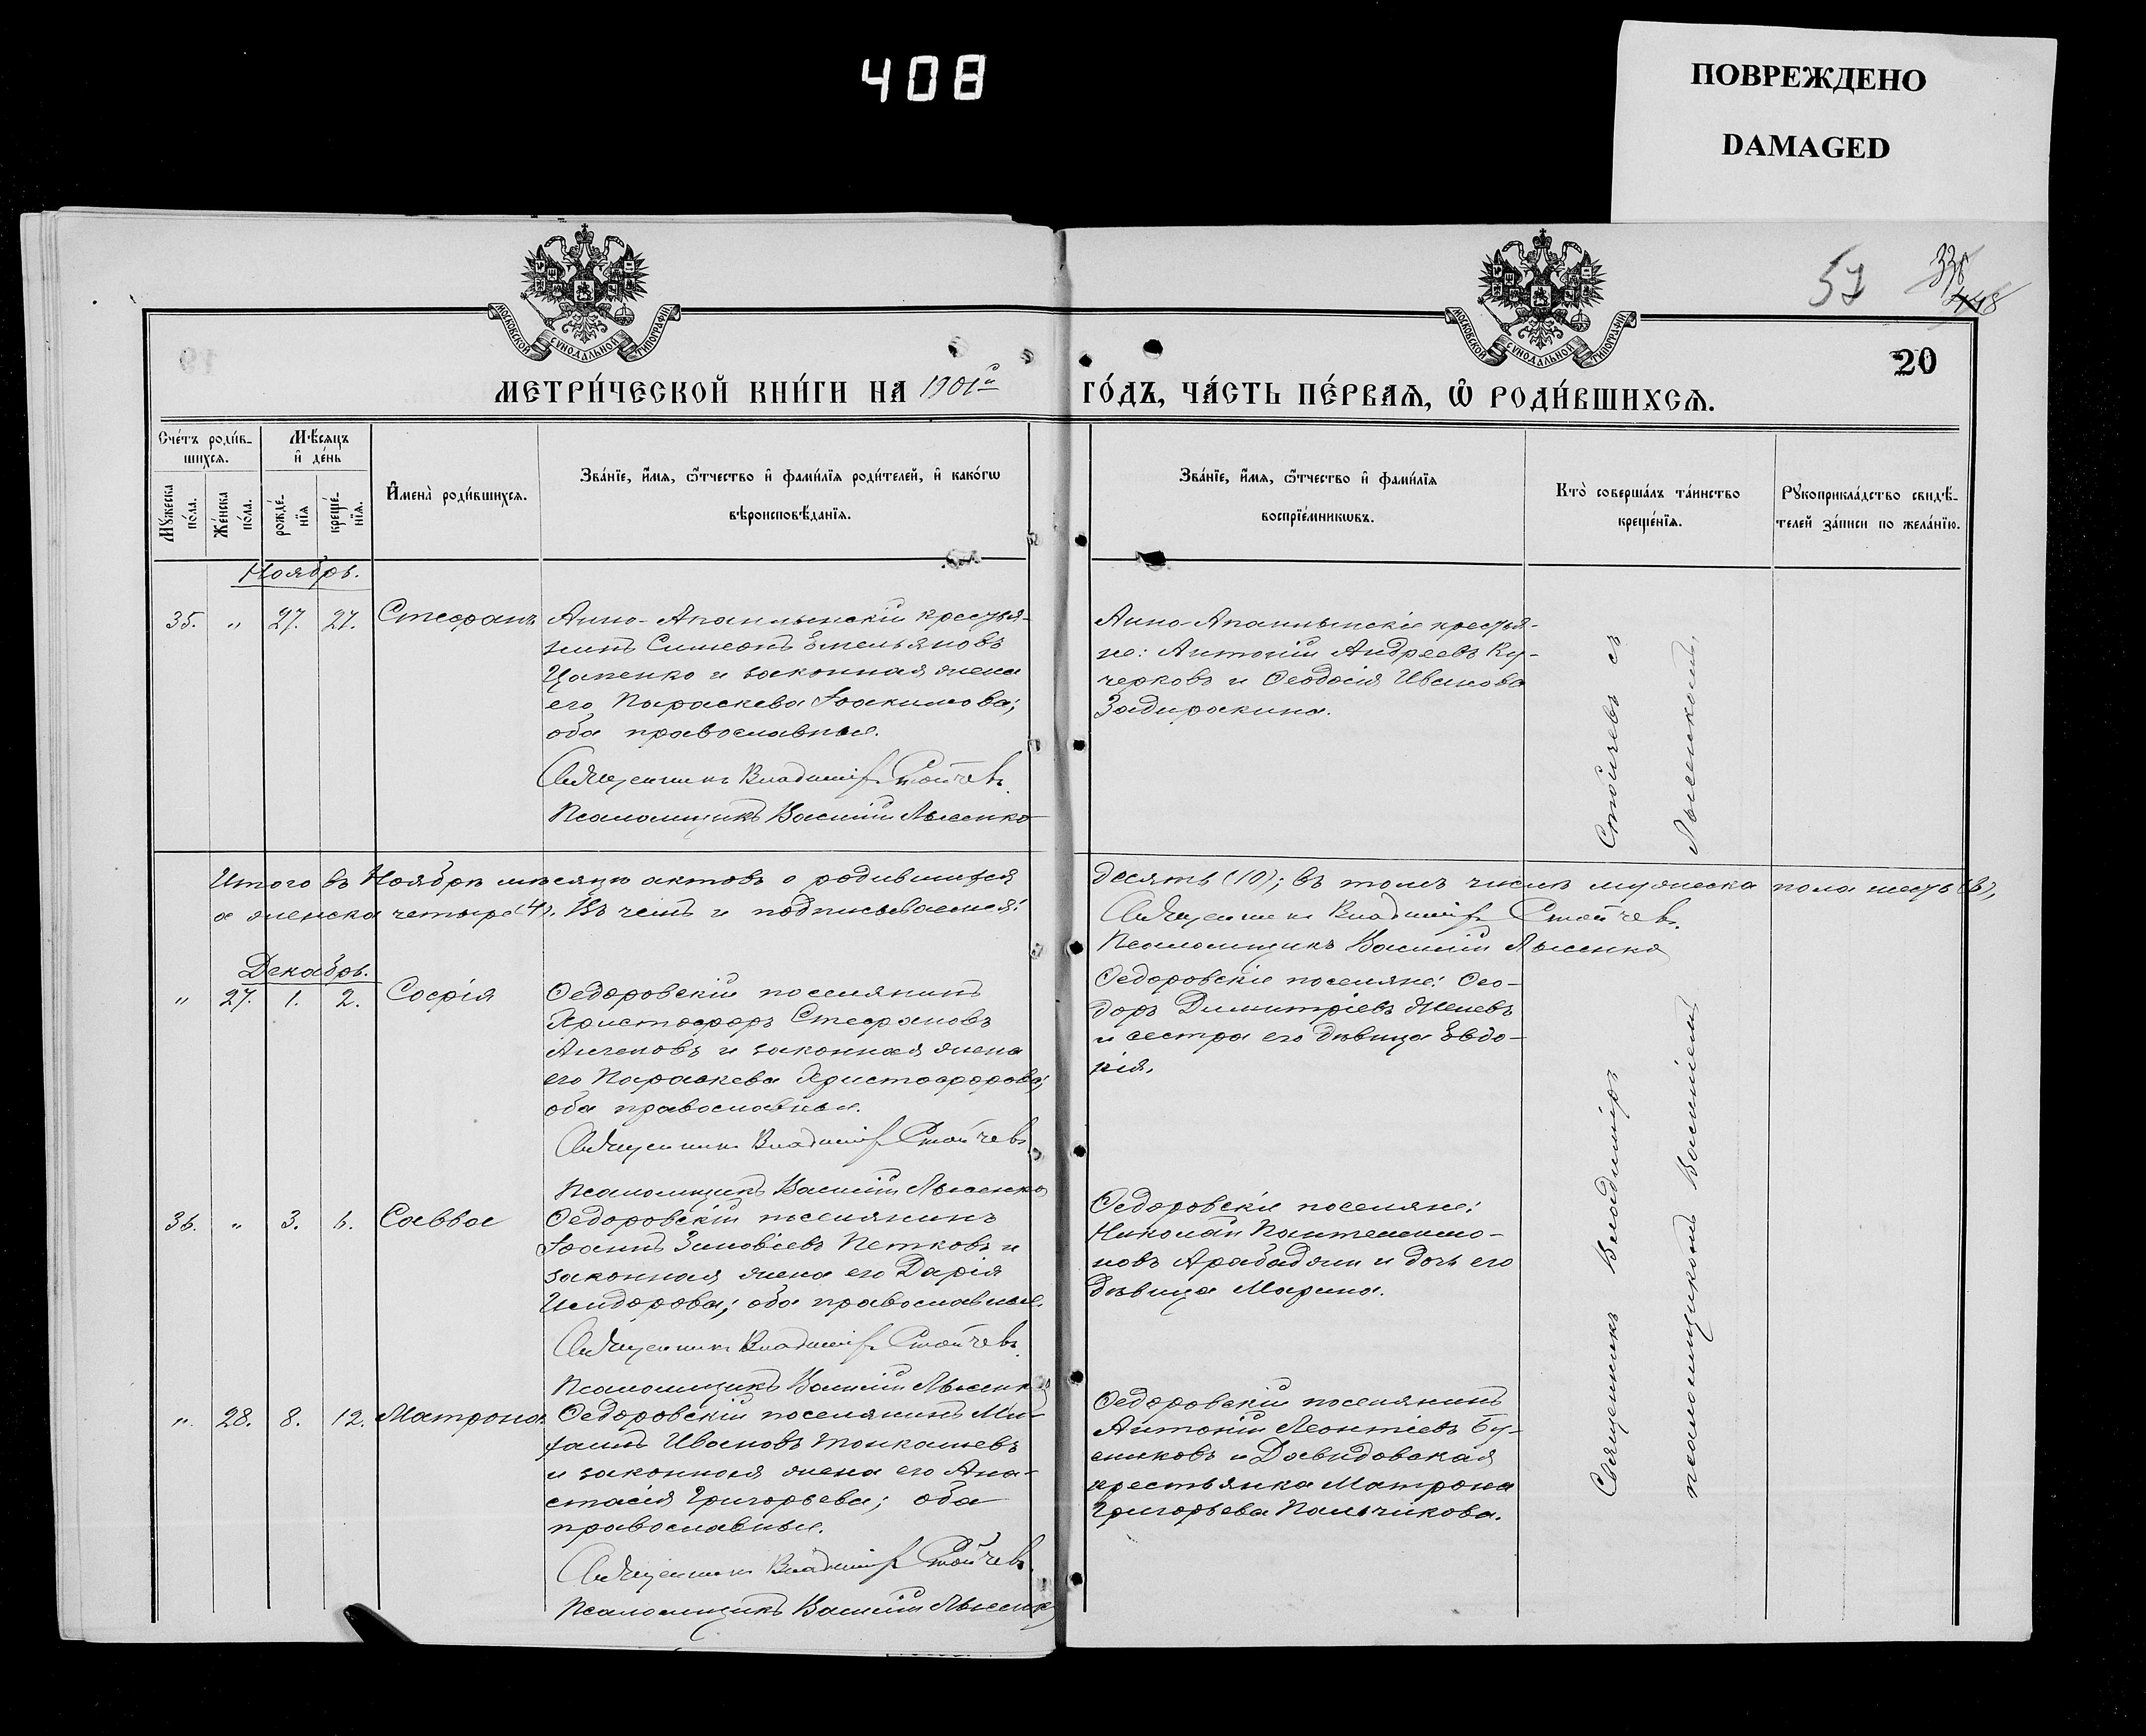 408
ПОВРЕЖДЕНО
DAMAGED
57
338
448
20
МОСКОВСКОЙ СѴНОДАЛЬНОЙ ТИПОГРАФІИ
МОСКОВСКОЙ СѴНОДАЛЬНОЙ ТИПОГРАФІИ
МЕТРИ́ЧЕСКОЙ КНИ́ГИ НА 1901й
ГО́ДЪ, ЧА́СТЬ ПЕ́РВАѦ, Ѽ РОДИ́ВШИХСѦ.
Сче́тъ роди́в-
шихсѧ.
Мѣ́сяцъ
и҆ де́нь
Мꙋ́жеска
по́ла.
Же́нска
по́ла.
рожде́-
нїѧ
креще́-
нїѧ.
И҆мена̀ роди́вшихсѧ.
Зва́нїе, и҆́мѧ, ѻ҆́тчество и҆ фами́лїѧ роди́телей, и҆ како́гѡ
вѣроисповѣ́данїѧ.
Зва́нїе, и҆́мѧ, ѻ҆́тчество и҆ фами́лїѧ
воспрїе́мникѡвъ.
Кто̀ соверша́лъ та́инство
креще́нїѧ.
Рꙋкоприкла́дство свидѣ́-
телей за́писи по жела́нїю.
Ноябрь.
35. " 27. 27. Стефанъ
Анно-Апанлынскій крестья-
нинъ Симеонъ Емельяновъ
Цапенко и законная жена
его Параскева Іоакимова;
оба православные.
Священникъ Владиміръ Стойчевъ.
Псаломщикъ Василій Лысенко
Анно-Апанлынскіе крестья-
не: Антоній Андреевъ Ку-
черковъ и Ѳеодосія Иванова
Задиракина.
Итого въ Ноябрѣ мѣсяцѣ актовъ о родившихся десять (10); въ томъ числѣ мужеска пола шесть (6),
а женска четыре (4). Въ чемъ и подписываемся:
Священникъ Владиміръ Стойчевъ.
Псаломщикъ Василій Лысенко
Декабрь.
" 27. 1. 2. Софія
Ѳедоровскій поселянинъ
Христофоръ Стефановъ
Ангеловъ и законная жена
его Параскева Христофорова;
оба православные.
Священникъ Владиміръ Стойчевъ.
Псаломщикъ Василій Лысенко
Ѳедоровскіе поселяне: Ѳео-
доръ Димитріевъ Желевъ
и сестра его дѣвица Евдо-
кія.
36. " 3. 6. Савва
Ѳедоровскій поселянинъ
Іоаннъ Зиновіевъ Петковъ и
законная жена его Дарія
Исидорова; оба православные.
Священникъ Владиміръ Стойчевъ.
Псаломщикъ Василій Лысенко
Ѳедоровскіе поселяне:
Николай Пантелеимо-
новъ Арабаджи и дочь его
дѣвица Марина.
" 28. 8. 12. Матрона
Ѳедоровскій поселянинъ Ми-
хаилъ Ивановъ Топкашевъ
и законная жена его Ана-
стасія Григорьева; оба
православные.
Священникъ Владиміръ Стойчевъ.
Псаломщикъ Василій Лысенко
Ѳедоровскій поселянинъ
Антоній Леонтіевъ Бу-
сниковъ и Давидовская
крестьянка Матрона
Григорьева Пальчикова.
Священникъ Владиміръ Стойчевъ съ
псаломщикомъ Василіемъ Лысенкомъ.